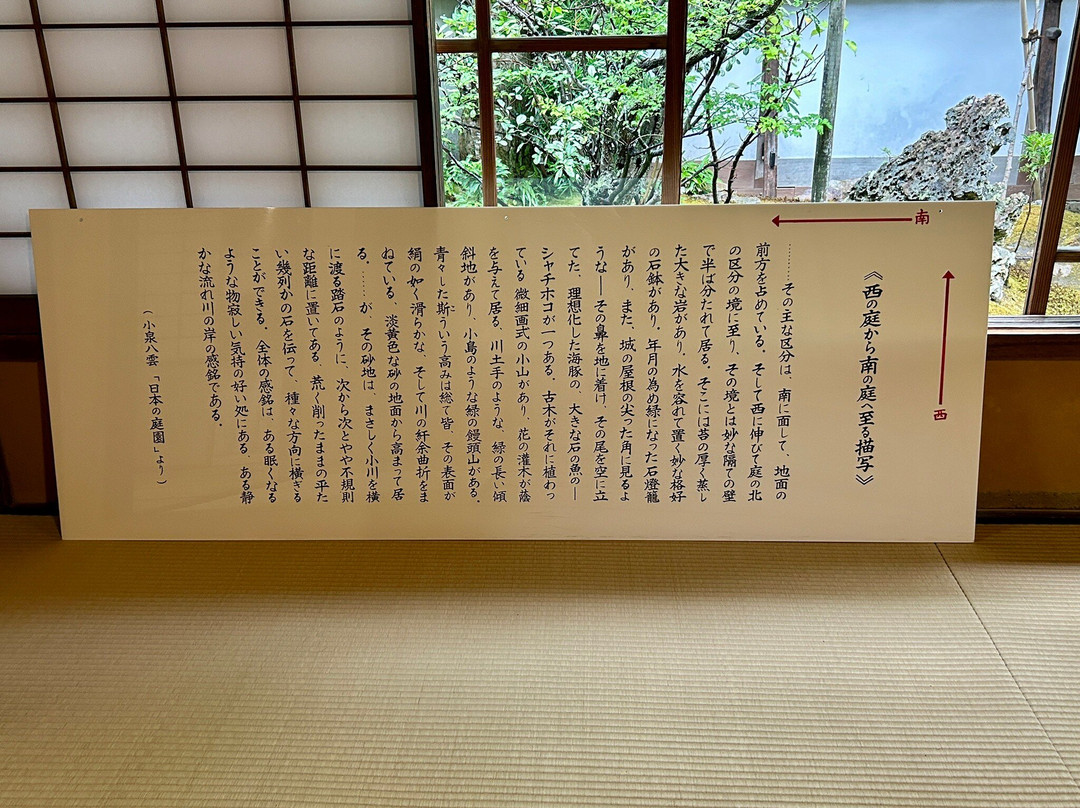 南
西
《西の庭から南の庭へ至る描写》
………その主な区分は、南に面して、地面の
前方を占めている。そして西に伸びて庭の北
の区分の境に至り、その境とは妙な隔ての壁
で半ば分たれて居る。そこには苔の厚く蒸し
た大きな岩があり、水を容れて置く妙な格好
の石鉢があり。年月の為め緑になった石燈籠
があり、また、城の屋根の尖った角に見るよ
うな――その鼻を地に着け、その尾を空に立
てた、理想化した海豚の、大きな石の魚の―
シャチホコが一つある。古木がそれに植わっ
ている 微細画式の小山があり、花の灌木が蔭
を与えて居る、川土手のような、緑の長い傾
斜地があり、小島のような緑の饅頭山がある。
青々した斯ういう高みは総て皆、その表面が
絹の如く滑らかな、そして川の紆余曲折をま
ねている、淡黄色な砂の地面から高まって居
る。………が、その砂地は、まさしく小川を横
に渡る踏石のように、次から次とやや不規則
な距離に置いてある 荒く削ったままの平た
い幾列かの石を伝って、種々な方向に横ぎる
ことができる。全体の感銘は、ある眠くなる
ような物寂しい気持の好い処にある ある静
かな流れ川の岸の感銘である。
(小泉八雲 「日本の庭園」より)